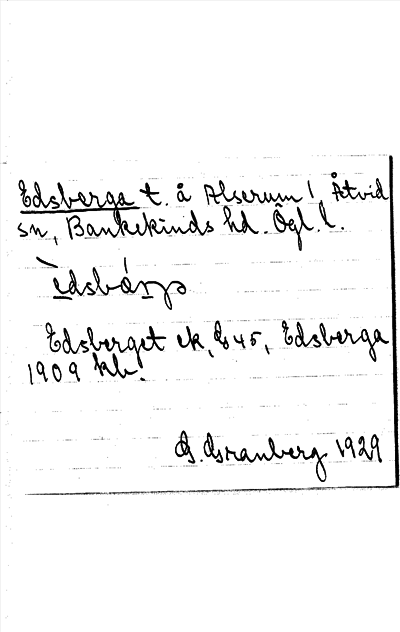 Edsberga t. å Alserum, Åtvid
sn, Bankekinds hd. Ögl. l.
Edsberget ek, 45, Edsberga
1909 kb.
G. Granberg 1929